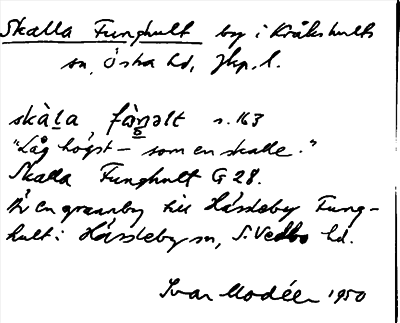 Skalla Funghult by i Kråkshults
sn, Östra hd, Jkp. l.
skàl̲a fàŋəlt s. 163
"Låg högst – som en skalle."
Skalla Funghult G 28.
Är en grannby till Hässleby Fung-
hult i Hässleby sn, S. Vedbo hd.
Ivar Modéer 1950